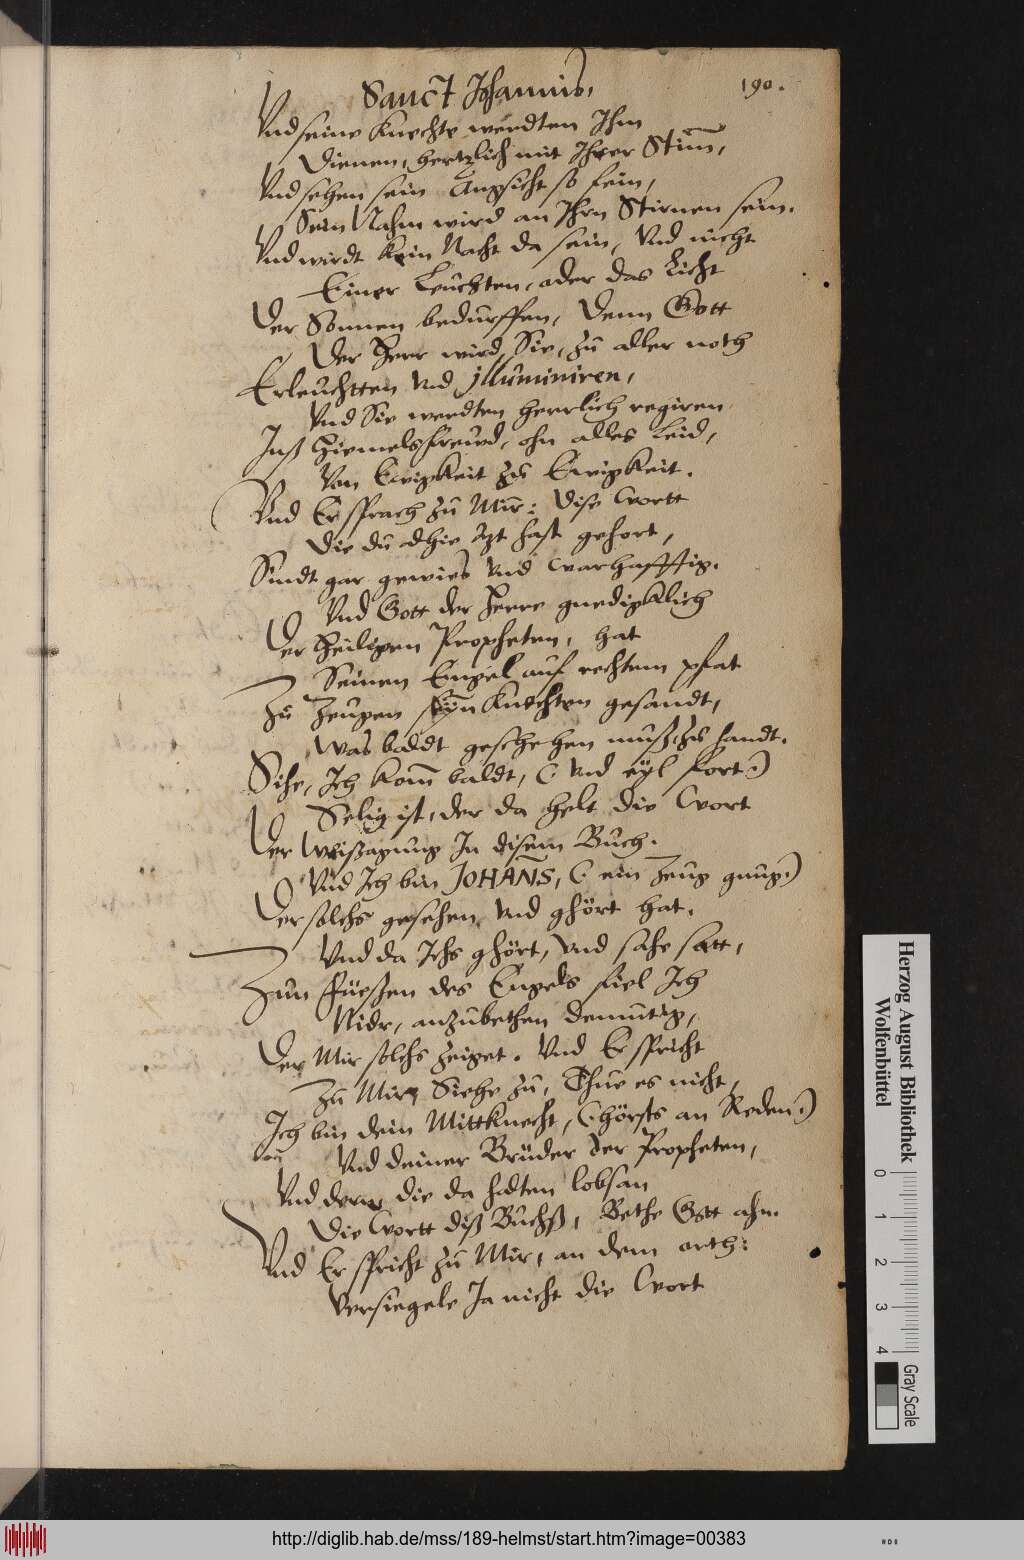 Sanct Johannis,
190.
Vnd seine Knechte werdten Ihm
Dienen, hertzlich mit Ihrer Stim̄,
Vnd sehen sein Angsicht so fein,
Sein Nahm wird an Ihrn Stirnen sein.
Vnd wirdt kein Nacht da sein, Vnd nicht
Einer Leuchten, oder das Licht
Der Sonnen bedurffen, Denn Gott
Der Herr wird, Sie, zu aller noth
Erleuchtten vnd jlluminiren,
Vnd Sie werdten herrlich regiren
Inß Hiemelsfrewd, ohn alles Leid,
Von Ewigkeit zu Ewigkeit.
Vnd Er sprach zu Mir: Dise Wortt
Die du alhie itzt hast gehort,
Sindt gar gewies vnd warhafftig.
Vnd Gott der Herre gnedigklich
Der Heiligen Propheten, hat
Seinen Engel auf rechtem pfat
Zu Zeugen seyn Knechten gesandt,
Was baldt geschehen muß zuhandt.
Sihe, Ich kom̄ baldt, (: vnd eyl fort:)
Selig ist, der da helt die Wort
Der Weißagung In disem Buch.
Vnd Ich bin JOHAN̄S, (: ein Zeug gnug:)
Der solchs gesehen vnd ghört hat.
Vnd da Ichs ghört, vnd sahe satt,
Zun Füeßen des Engels fiel Ich
Nidr, anzubethen demutig,
Der Mir solchs zeiget. Vnd Er spricht
Zu Mir, Siehe zu, Thue es nicht,
Ich bin dein Mittknecht, (: hörsts an Reden:)
Vnd deiner Brüder der Propheten,
Vnd derer die da halten lobsan
Die Wortt diß Buchß, Bethe Gott ahn.
Vnd Er spricht zu Mir, an dem orth:
Versiegele Ja nicht die Wort
Herzog August Bibliothek
Wolfenbüttel
0 1 2 3 4
Gray Scale
http://diglib.hab.de/mss/189-helmst/start.htm?image=00383